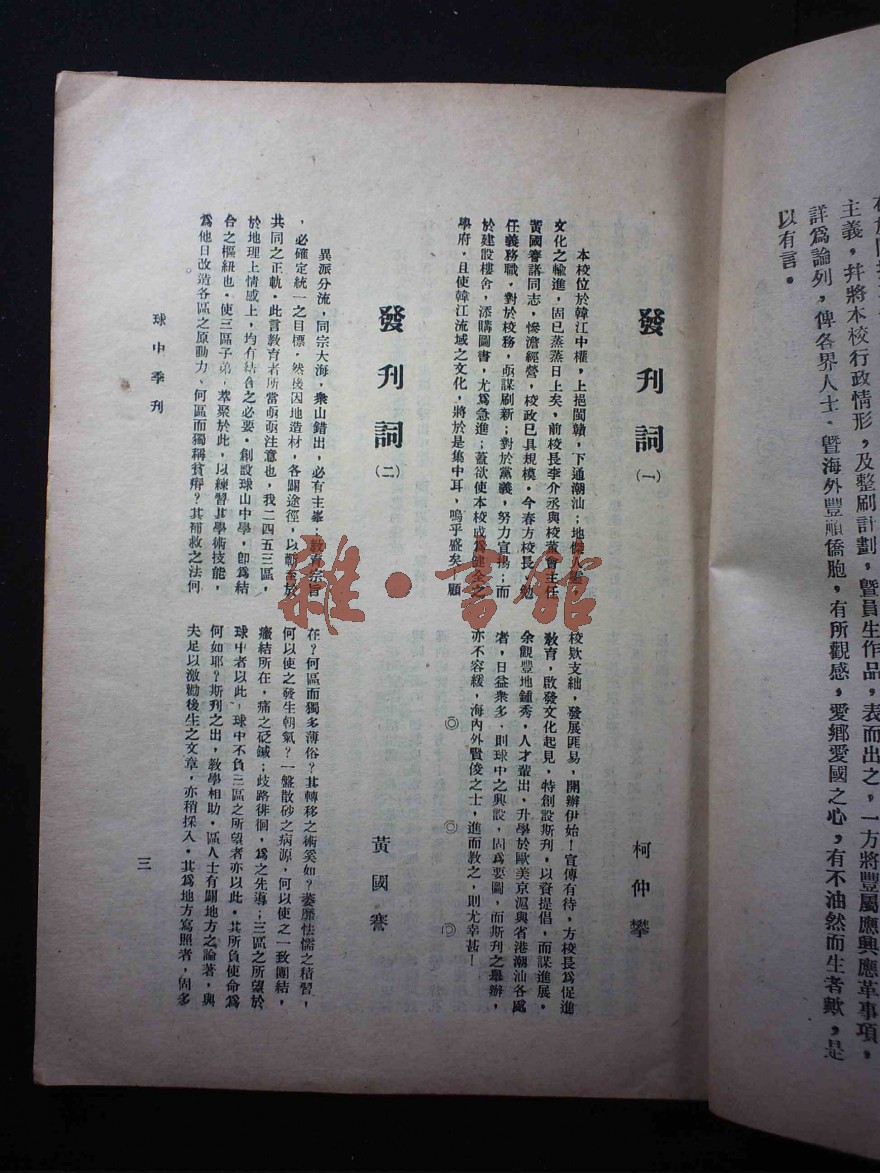 主義，幷將本校行政情形，及整刷計劃，曁員生作品，表而出之，一方將豐屬應興應革事項，
詳爲論列，俾各界人士，曁海外豐順僑胞，有所觀感，愛鄉愛國之心，有不油然而生者歟，是
以有言。
發刊詞(一)
柯仲攀
本校位於韓江中權，上挹閩贛，下通潮汕；地傑人靈，
文化之輸進，固已蒸蒸日上矣，前校長李介丞與校董會主任
黃國謇諸同志，慘澹經營，校政已具規模。今春方校長，勉
任義務職，對於校務，亟謀刷新；對於黨義，努力宣揚；而
於建設樓舍，添購圖書，尤爲急進；蓋欲使本校成爲健全之
學府，且使韓江流域之文化，將於是集中耳，嗚乎盛矣！顧
校欵支絀，發展匪易，開辦伊始！宣傳有待，方校長爲促進
敎育，啟發文化起見，特創設斯刋，以資提倡，而謀進展。
余觀豐地鍾秀，人才輩出，升學於歐美京滬與省港潮汕各處
者，日益衆多、則球中之興設，固爲要圖，而斯刋之舉辦，
亦不容緩，海內外賢俊之士，進而敎之，則尤幸甚！
◎ ◎ ◎
發刊詞(二)
黃國謇
異派分流，同宗大海，衆山錯出，必有主峯；敎育宗旨
，必確定統一之目標，然後因地造材，各闢途徑，以蘄至於
共同之正軌。此言敎育者所當亟亟注意也，我二四五三區，
於地理上情感上，均有結合之必要。創設球山中學，卽爲結
合之樞紐也。使三區子弟，萃聚於此，以練習其學術技能，
爲他日改造各區之原動力、何區而獨稱貧瘠？其補救之法何
在？何區而獨多薄俗？其轉移之術奚如？萎靡怯懦之積習，
何以使之發生朝氣？一盤散砂之病源，何以使之一致團結，
癥結所在，痛之砭鍼；歧路徘徊，爲之先導；三區之所望於
球中者以此，球中不負三區之所望者亦以此。其所負使命爲
何如耶？斯刋之出，敎學相助，區人士有關地方之論著，與
夫足以激勸後生之文章，亦稍採入。其爲地方寫照者，固多
球中季刊
三
雜·書館